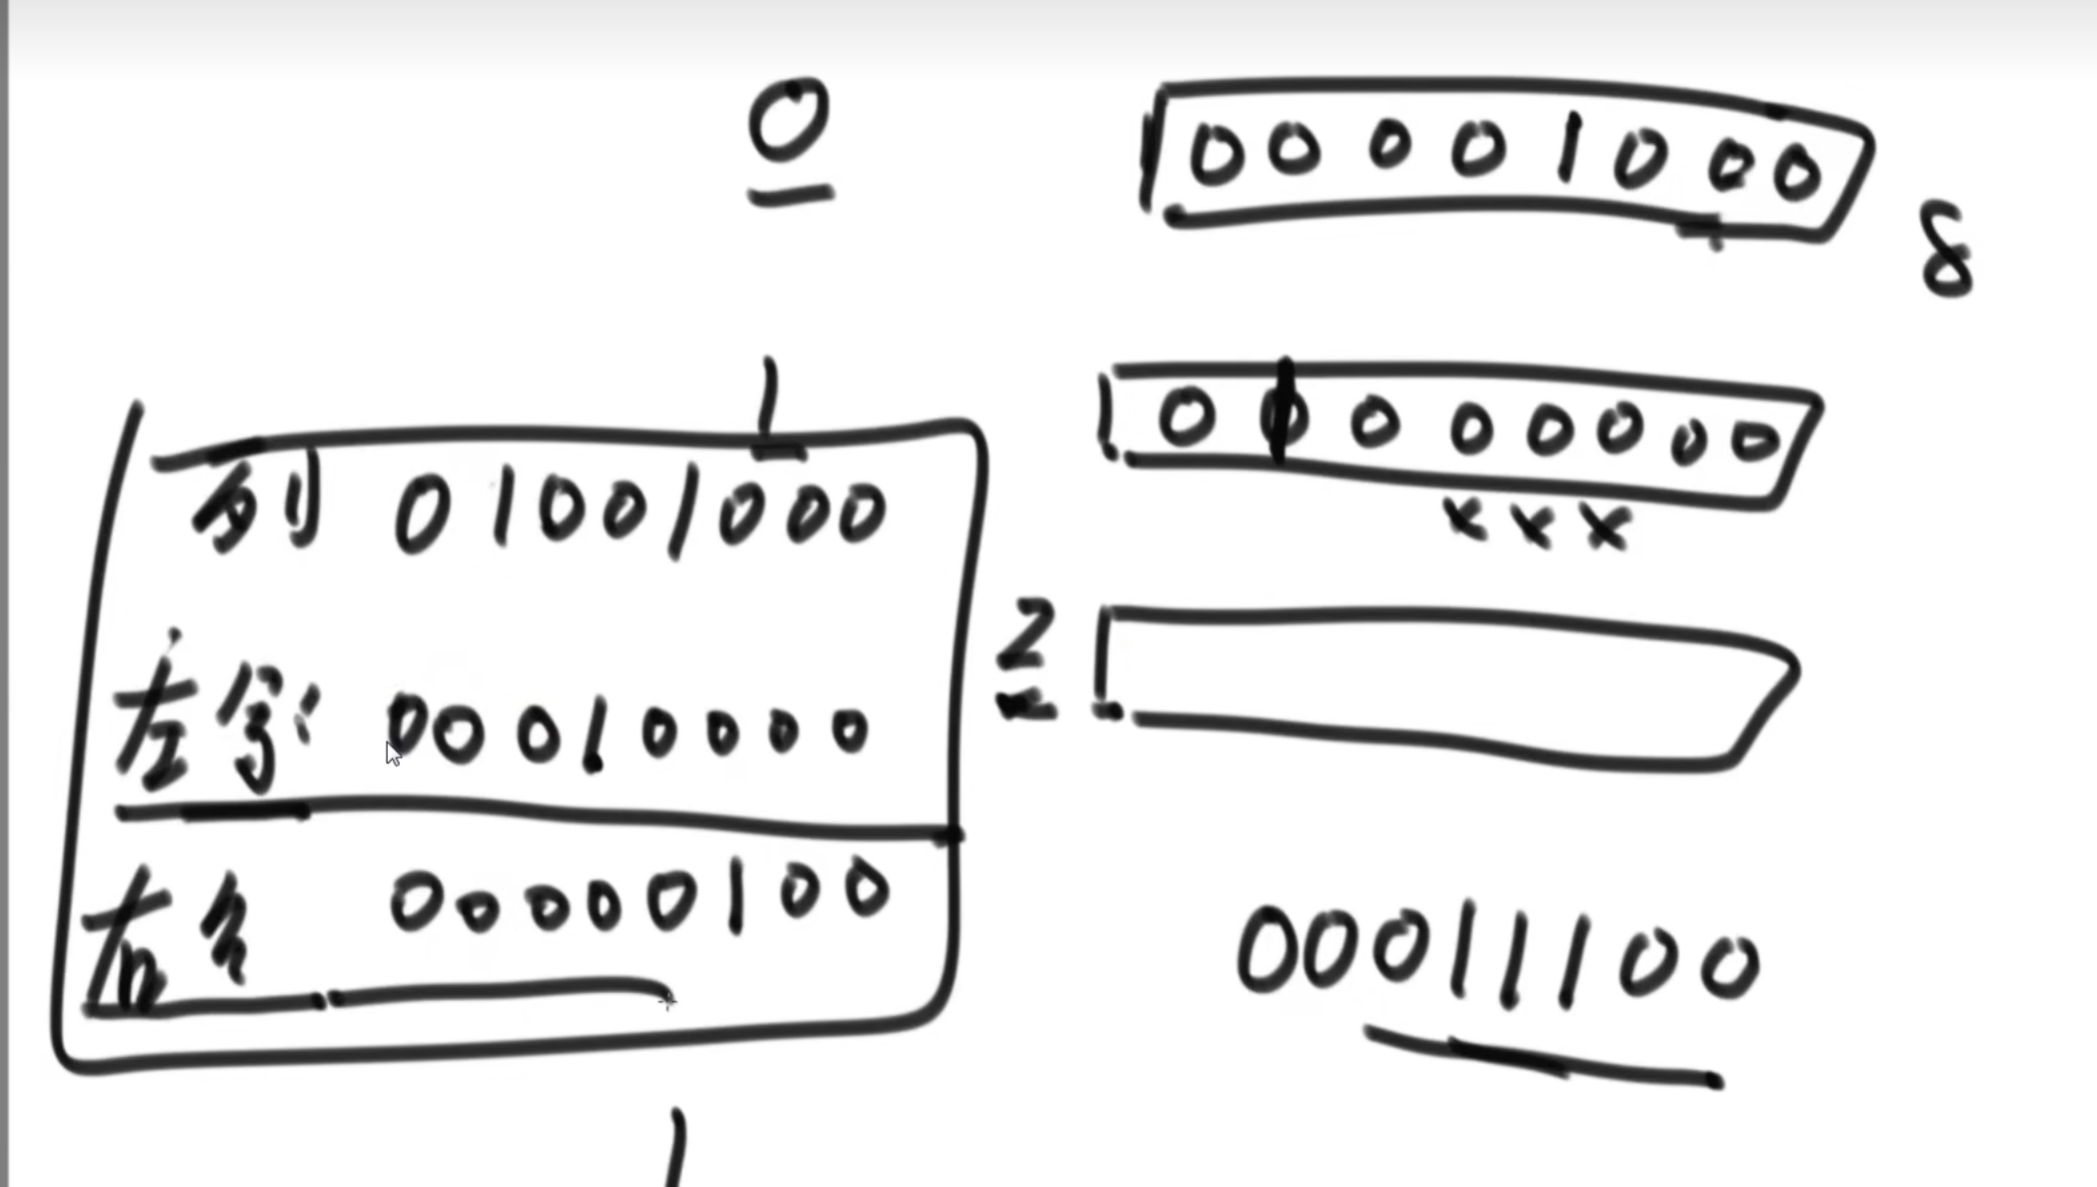 0
00001000
8
1
00000000
× × ×
列 01001000
2
左 00010000
右 00000100
00011100